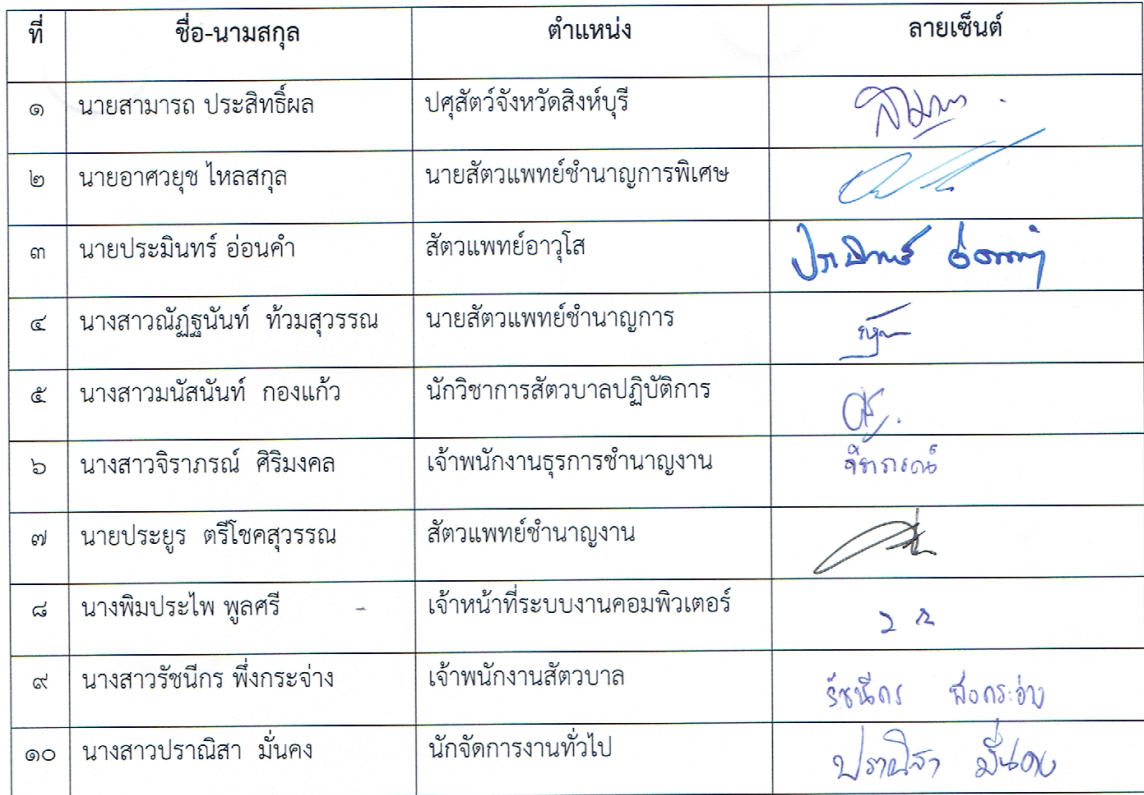 ที่ ชื่อ-นามสกุล ตำแหน่ง ลายเซ็นต์
๑ นายสามารถ ประสิทธิ์ผล ปศุสัตว์จังหวัดสิงห์บุรี
๒ นายอาศวยุช ไหลสกุล นายสัตวแพทย์ชำนาญการพิเศษ
๓ นายประมินทร์ อ่อนคำ สัตวแพทย์อาวุโส ประมินทร์ อ่อนคำ
๔ นางสาวณัฏฐนันท์ ท้วมสุวรรณ นายสัตวแพทย์ชำนาญการ
๕ นางสาวมนัสนันท์ กองแก้ว นักวิชาการสัตวบาลปฏิบัติการ
๖ นางสาวจิราภรณ์ ศิริมงคล เจ้าพนักงานธุรการชำนาญงาน จิราภรณ์
๗ นายประยูร ตรีโชคสุวรรณ สัตวแพทย์ชำนาญงาน
๘ นางพิมประไพ พูลศรี - เจ้าหน้าที่ระบบงานคอมพิวเตอร์
๙ นางสาวรัชนีกร พึ่งกระจ่าง เจ้าพนักงานสัตวบาล รัชนีกร พึ่งกระจ่าง
๑๐ นางสาวปราณิสา มั่นคง นักจัดการงานทั่วไป ปราณิสา มั่นคง